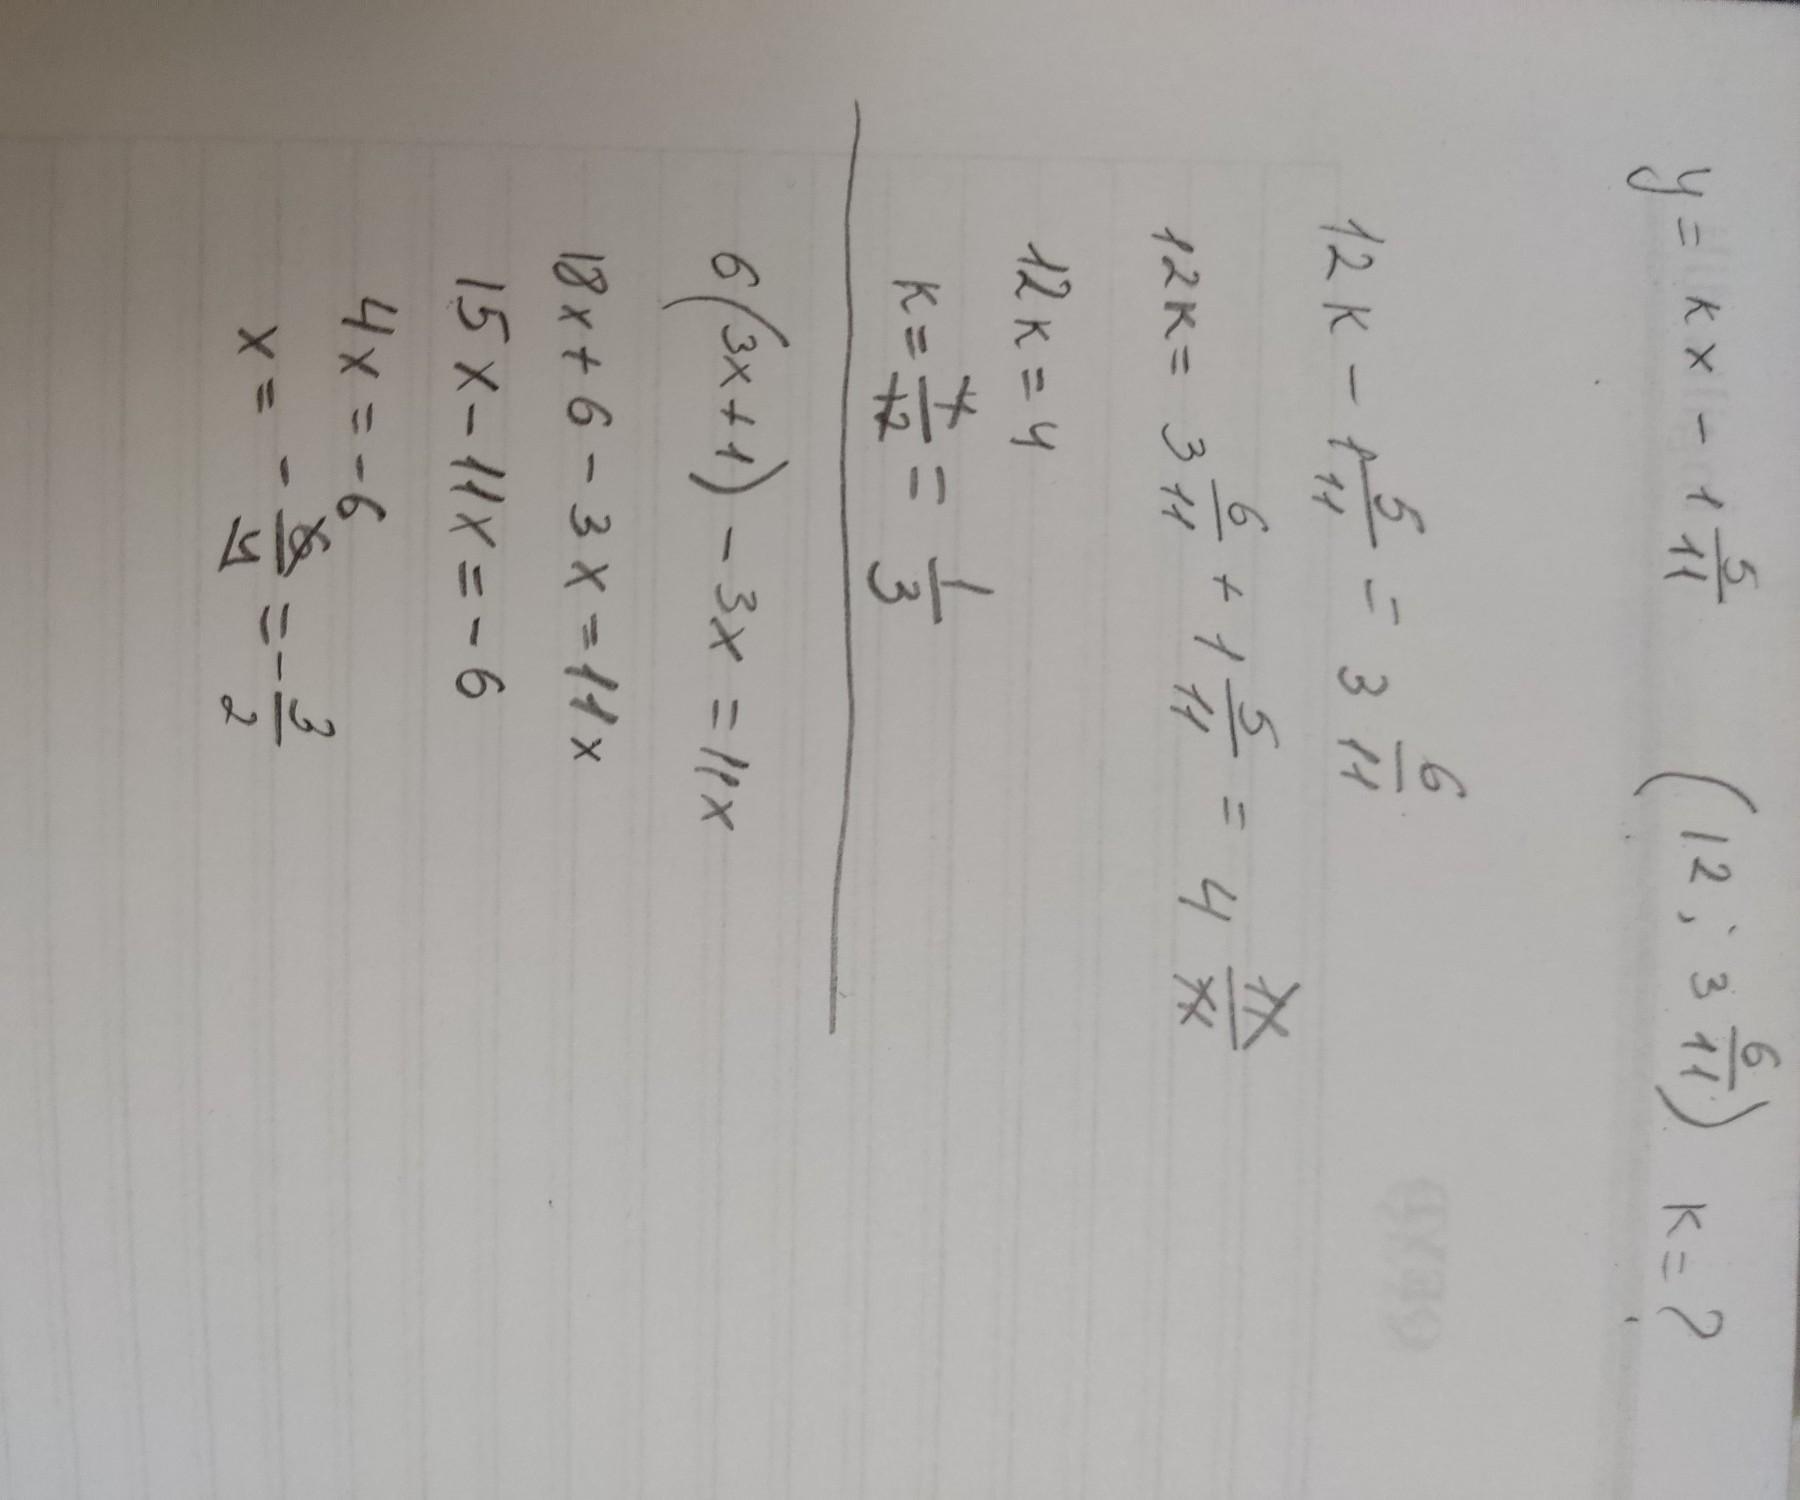 y = kx - 1 5/11 (12; 3 6/11) k = ?
12k - 1 5/11 = 3 6/11
12k = 3 6/11 + 1 5/11 = 4 11/11
12k = 4
k = 4/12 = 1/3
6(3x+1) - 3x = 11x
18x + 6 - 3x = 11x
15x - 11x = -6
4x = -6
x = - 6/4 = - 3/2